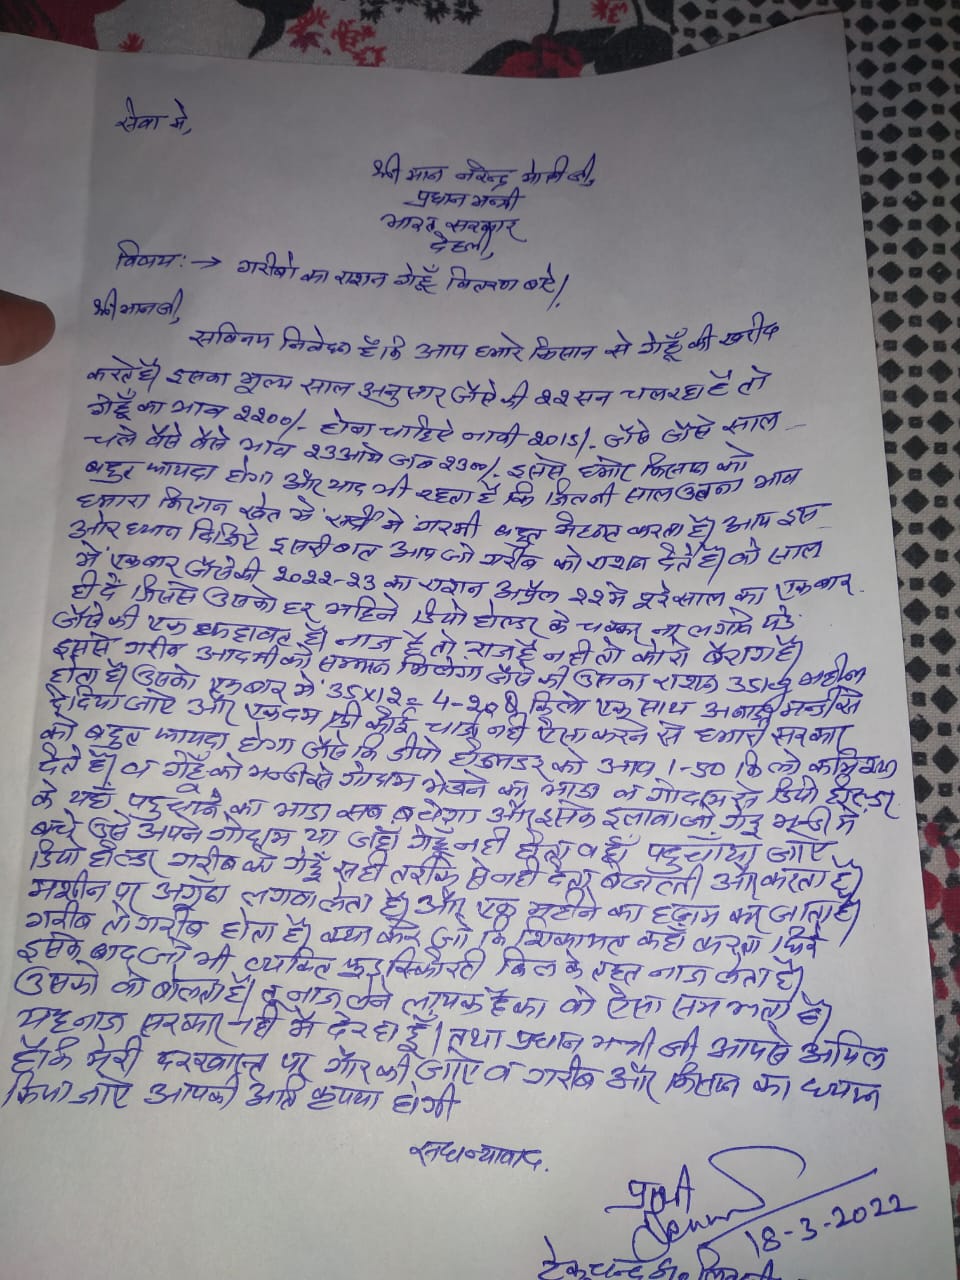 सेवा मे,
श्री मान नरेन्द्र मोदी जी,
प्रधान मन्त्री
भारत सरकार
देहली,
विषय:→ गरीबो का राशन गेहूँ वितरण बारे।
श्री मानजी,
सविनय निवेदन है कि आप हमारे किसान से गेहूँ की खरीद
करते है। इसका मूल्य साल अनुसार जैसे की 22 सन चल रहा है तो
गेहूँ का भाव 2200/- होना चाहिऐ नाकी 2015/- जैसे जैसे साल
चले वैसे वैसे भाव 23 आऐ जब 2300/- इससे हमारे किसान को
बहुत फायदा होगा और याद भी रहता है कि जितनी साल उतना भाव
हमारा किसान खेत में सर्दी में गरमी बहुत मेहनत करता है। आप इस
ओर ध्यान दिजिऐ दुसरी बात आप जो गरीब को राशन देते है। वो साल
में एकबार जैसे की 2022-23 का राशन अप्रैल 22 मे पुरे साल का एकबार
ही दें जिससे उसको हर महिने डिपो होल्डर के चक्कर ना लगाने पडे
जैसे की एक कहावत है। नाज है तो राज है नही तो कोरा बैराग है।
इससे गरीब आदमी को सम्मान मिलेगा जैसे की उसका राशन 35 kg महीना
होता है। उसको एकबार में 35x12= 4-20 किलो एक साथ अनाज मन्डी से
दे दिया जाऐ और एकदम फ्री कोई चार्ज नही ऐसा करने से हमारी सरकार
को बहुत फायदा होगा जैसे कि डीपो होल्डर को आप 1-50 किलो कमिशन
देते है। व गेहूँ को मन्डी से गोदाम भेजने का भाडा व गोदाम से डिपो होल्डर
के यहाँ पहुचाने का भाडा सब बचेगा और इसके इलावा जो गेहू मन्डी में
बचे उसे अपने गोदाम या जहाँ गेहूँ नही होता वहाँ पहुचाँया जाऐ
डिपो होल्डर गरीब को गेहूँ सही तरीके से नही देता बेजती और करता है।
मशीन पर अगुँठा लगवा लेता है। और एक महीने का हजम कर जाता है।
गरीब तो गरीब होता है। क्या करे जो कि शिकायत कहाँ करता फिरे
इसके बाद जो भी व्यक्ति फुड सिकोरटी बिल के तहत नाज लेता है।
उसको वो बोलता है। तु नाज लेने लायक है का वो ऐसा समझता है।
यह नाज सरकार नही मै दे रहा हूँ। तथा प्रधान मन्त्री जी आपसे अपिल
है कि मेरी दरखास्त पर गौर की जाऐ व गरीब और किसान का ध्यान
किया जाऐ आपकी अति कृपया होगी
सधन्यावाद.
प्रार्थी
18-3-2022
टेकचन्द